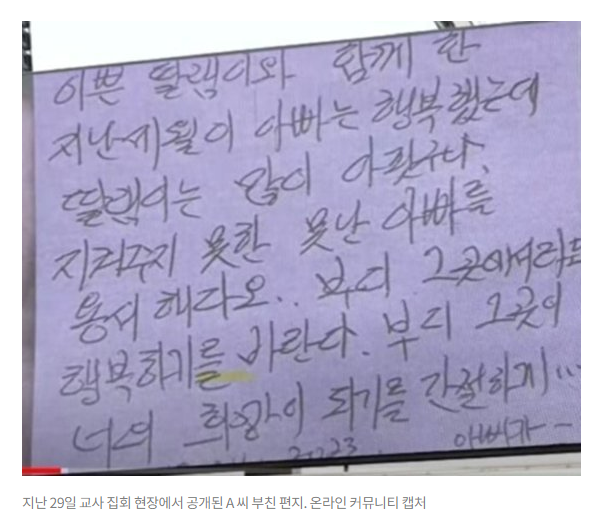 이쁜 딸램이와 함께 한
지난세월이 아빠는 행복했는데
딸램이는 많이 아팠구나.
지켜주지 못한 못난 아빠를
용서 해다오.. 부디 그곳에서라도
행복하기를 바란다. 부디 그곳이
너의 희망이 되기를 간절하게...
2023.
아빠가-
지난 29일 교사 집회 현장에서 공개된 A 씨 부친 편지. 온라인 커뮤니티 캡처